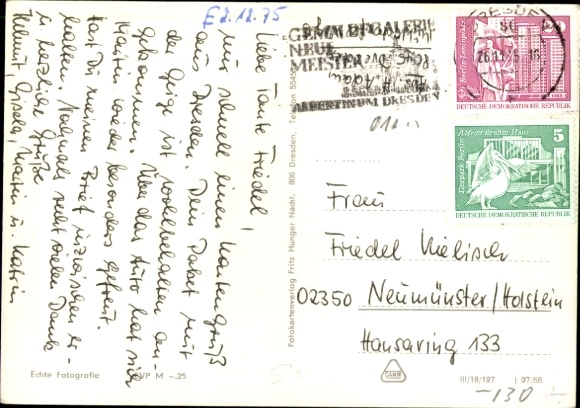 E 2.12.75
Liebe Tante Friedel,
nur schnell einen Kartengruß
aus Dresden. Dein Paket mit
der Geige ist wohlbehalten an-
gekommen. Über das Auto hat sich
Martin wieder besonders gefreut.
Hast Du meinen Brief inzwischen er-
halten. Nochmals recht vielen Dank
u. herzliche Grüße
Helmut, Gisela, Martin u. Katrin
Echte Fotografie
VP M -.25
Fotokartenverlag Fritz Hunger Nachf. 806 Dresden, Telefon
GEMÄLDEGALERIE
NEUE
MEISTER
ALBERTINUM DRESDEN
DRESDEN
26.11.75
Berlin-Leninplatz
DEUTSCHE DEMOKRATISCHE REPUBLIK
Alfred-Brehm-Haus
5
Tierpark Berlin
DEUTSCHE DEMOKRATISCHE REPUBLIK
Frau
Friedel Mielisch
02350 Neumünster/Holstein
Hansaring 133
III/18/197 I 97/68
-130